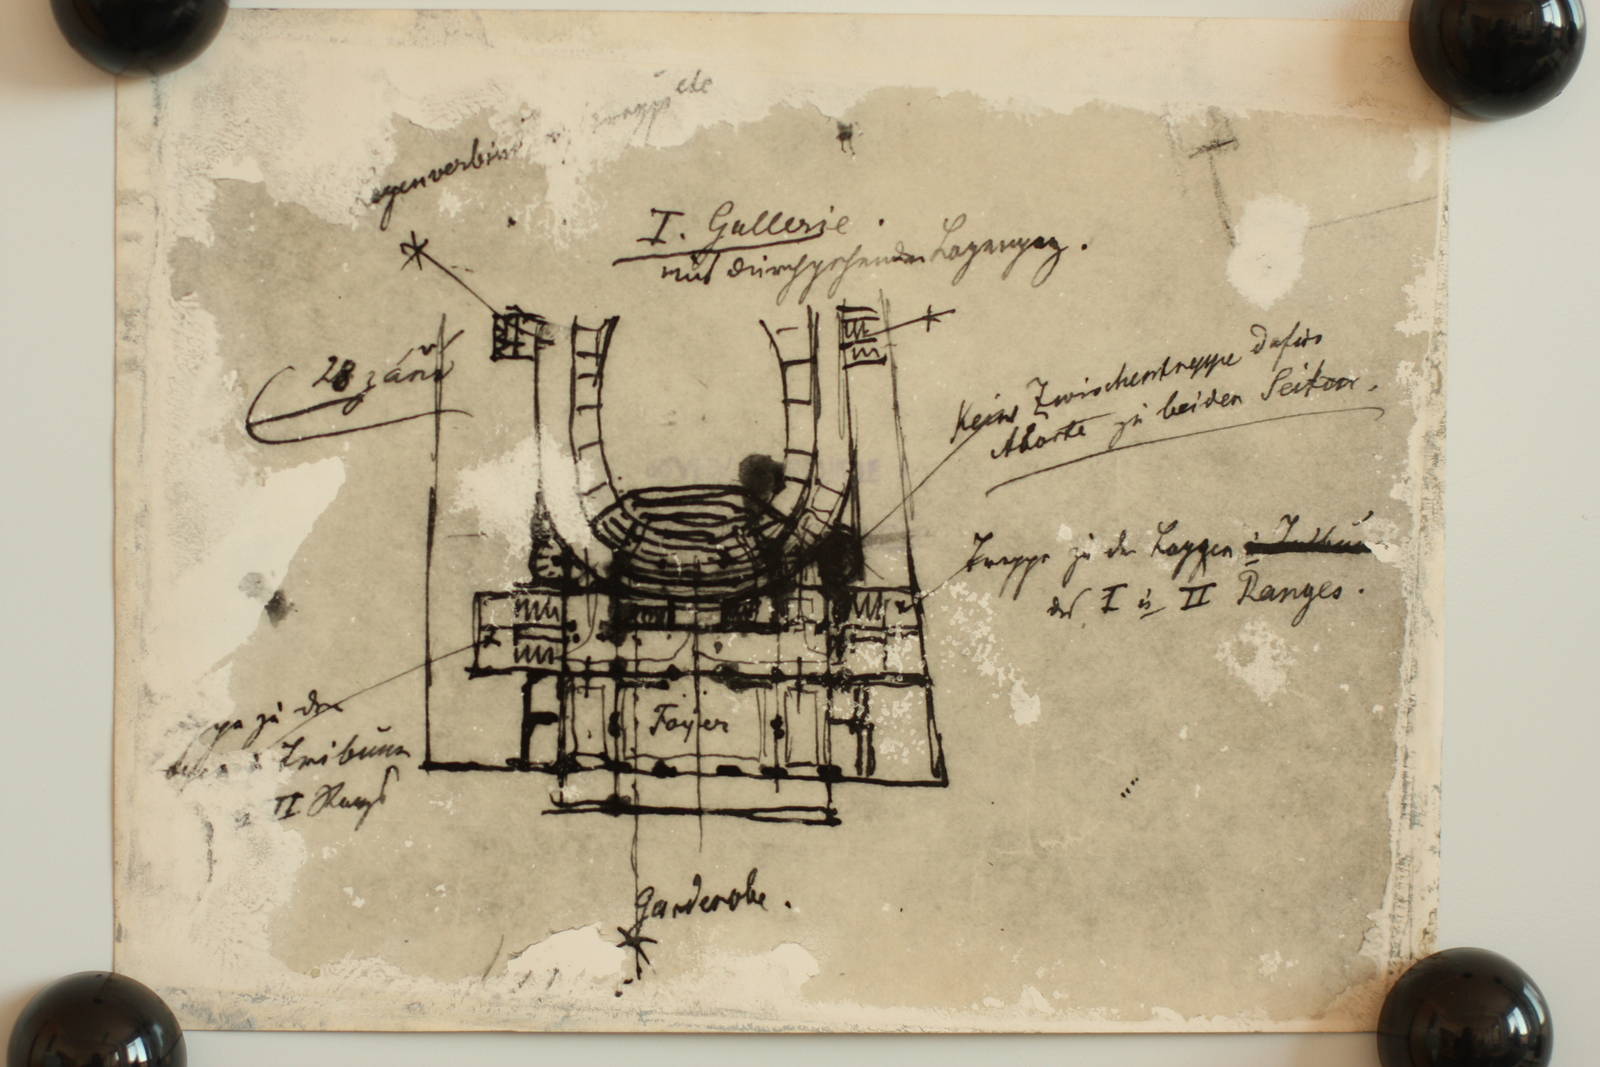 etc
I. Gallerie.
mit durchgehenden Logengang.
28 září
Keine Zwischentreppe dafür
Aborte zu beiden Seiten.
Treppe zu den Loggen
des I u II Ranges.
zu den
Tribune
II Rangs
Foyer
Garderobe.